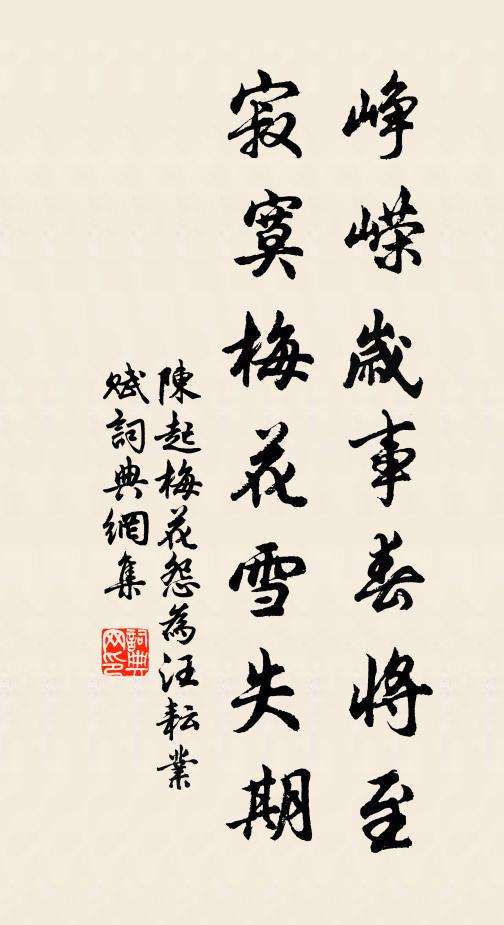 峥嵘歲事春將至
寂寞梅花雪失期
陳起梅花怨為汪耘業
赋詞典網集
詞典
网印